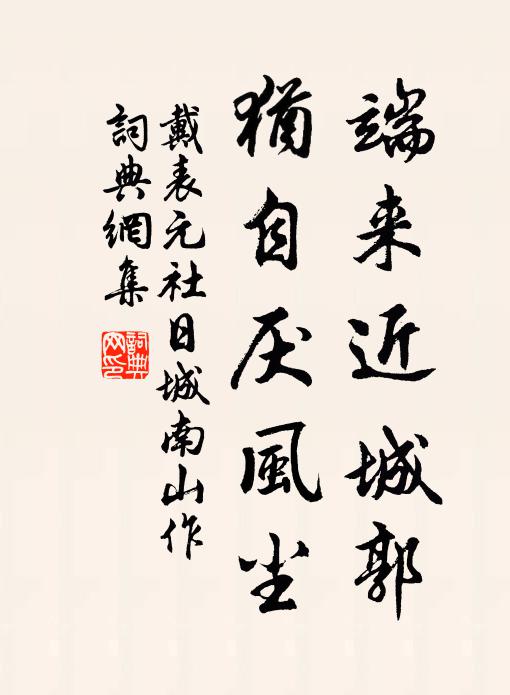 端来近城郭
猶自厌風尘
戴表元社日城南山作
詞典網集
詞典网印